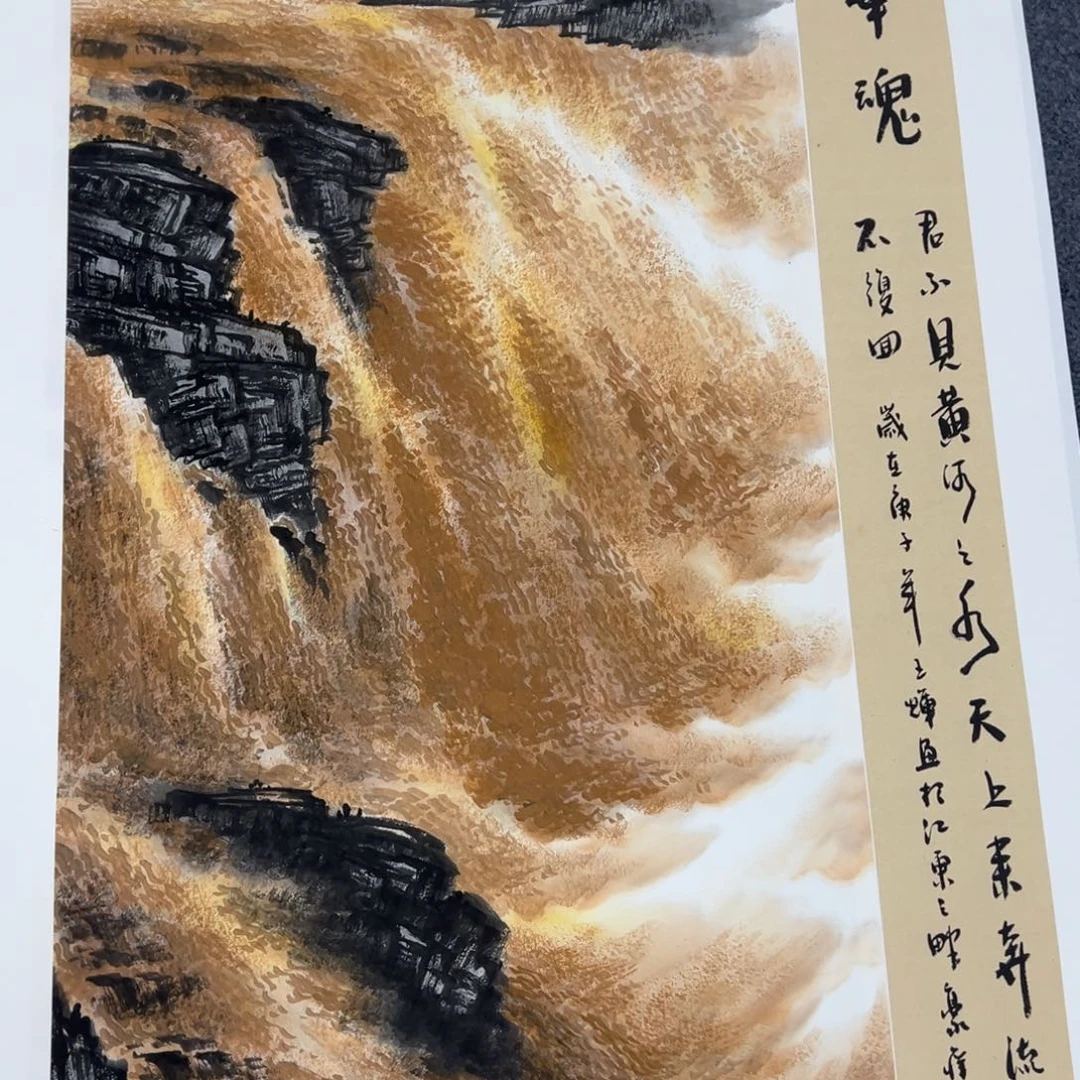 魂
君不見黄河之水天上來奔流
不復回 歲在庚子年王煇画於江東之畔